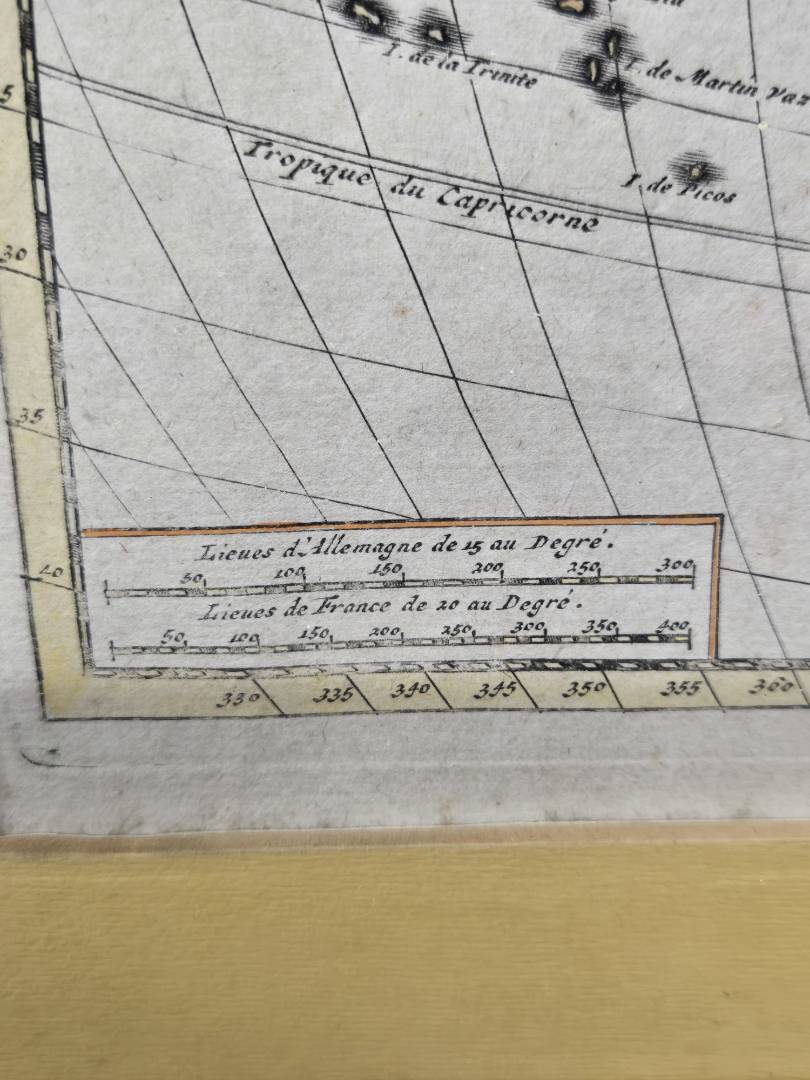 I. de la Trinite
I. de Martin Vaz
I. de Picos
Tropique du Capricorne
5
30
35
40
Lieues d'Allemagne de 15 au Degré.
50 100 150 200 250 300
Lieues de France de 20 au Degré.
50 100 150 200 250 300 350 400
330 335 340 345 350 355 360